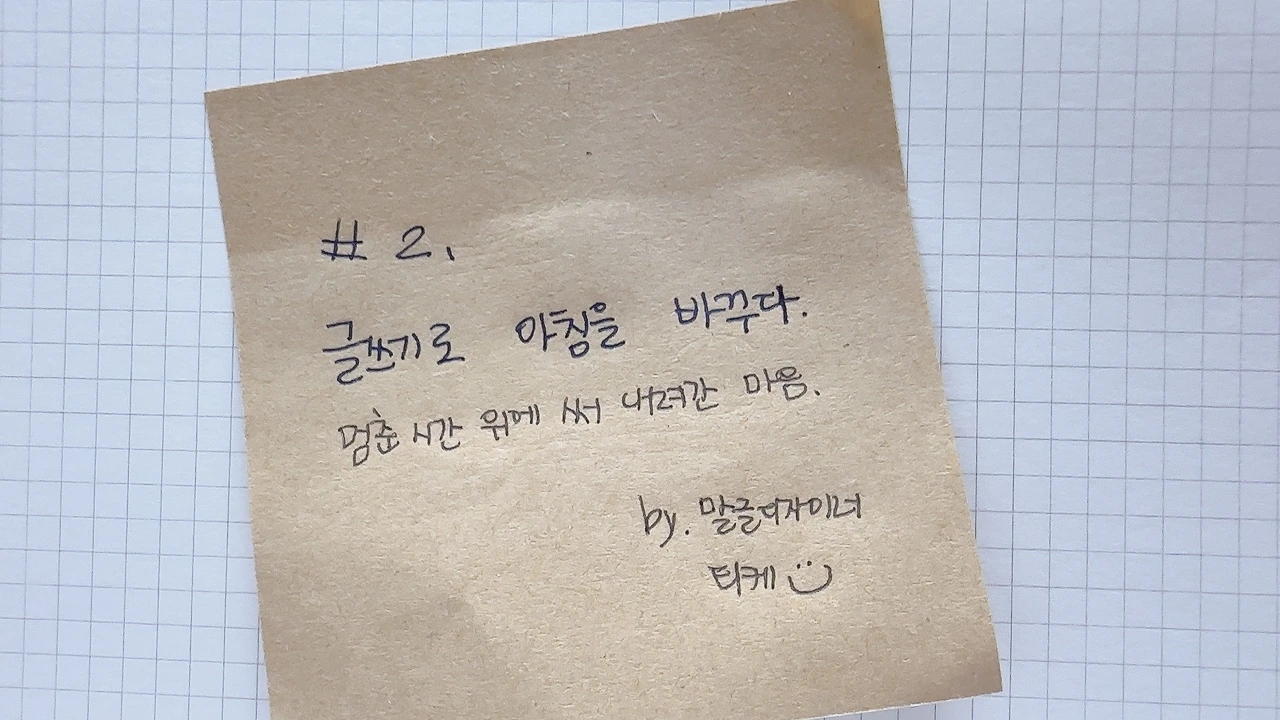 # 2.
글쓰기로 아침을 바꾸다.
멈춘 시간 위에 써 내려간 마음.
by. 말글디자이너
티케